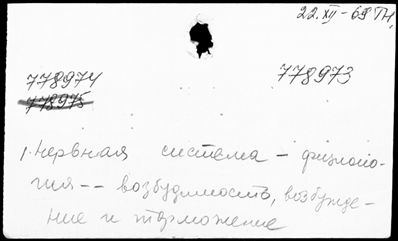 22.XII-69 ТН.
778974
778973
778975
1. нервная система - физиоло-
гия -- возбудимость, возбужде-
ние и торможение